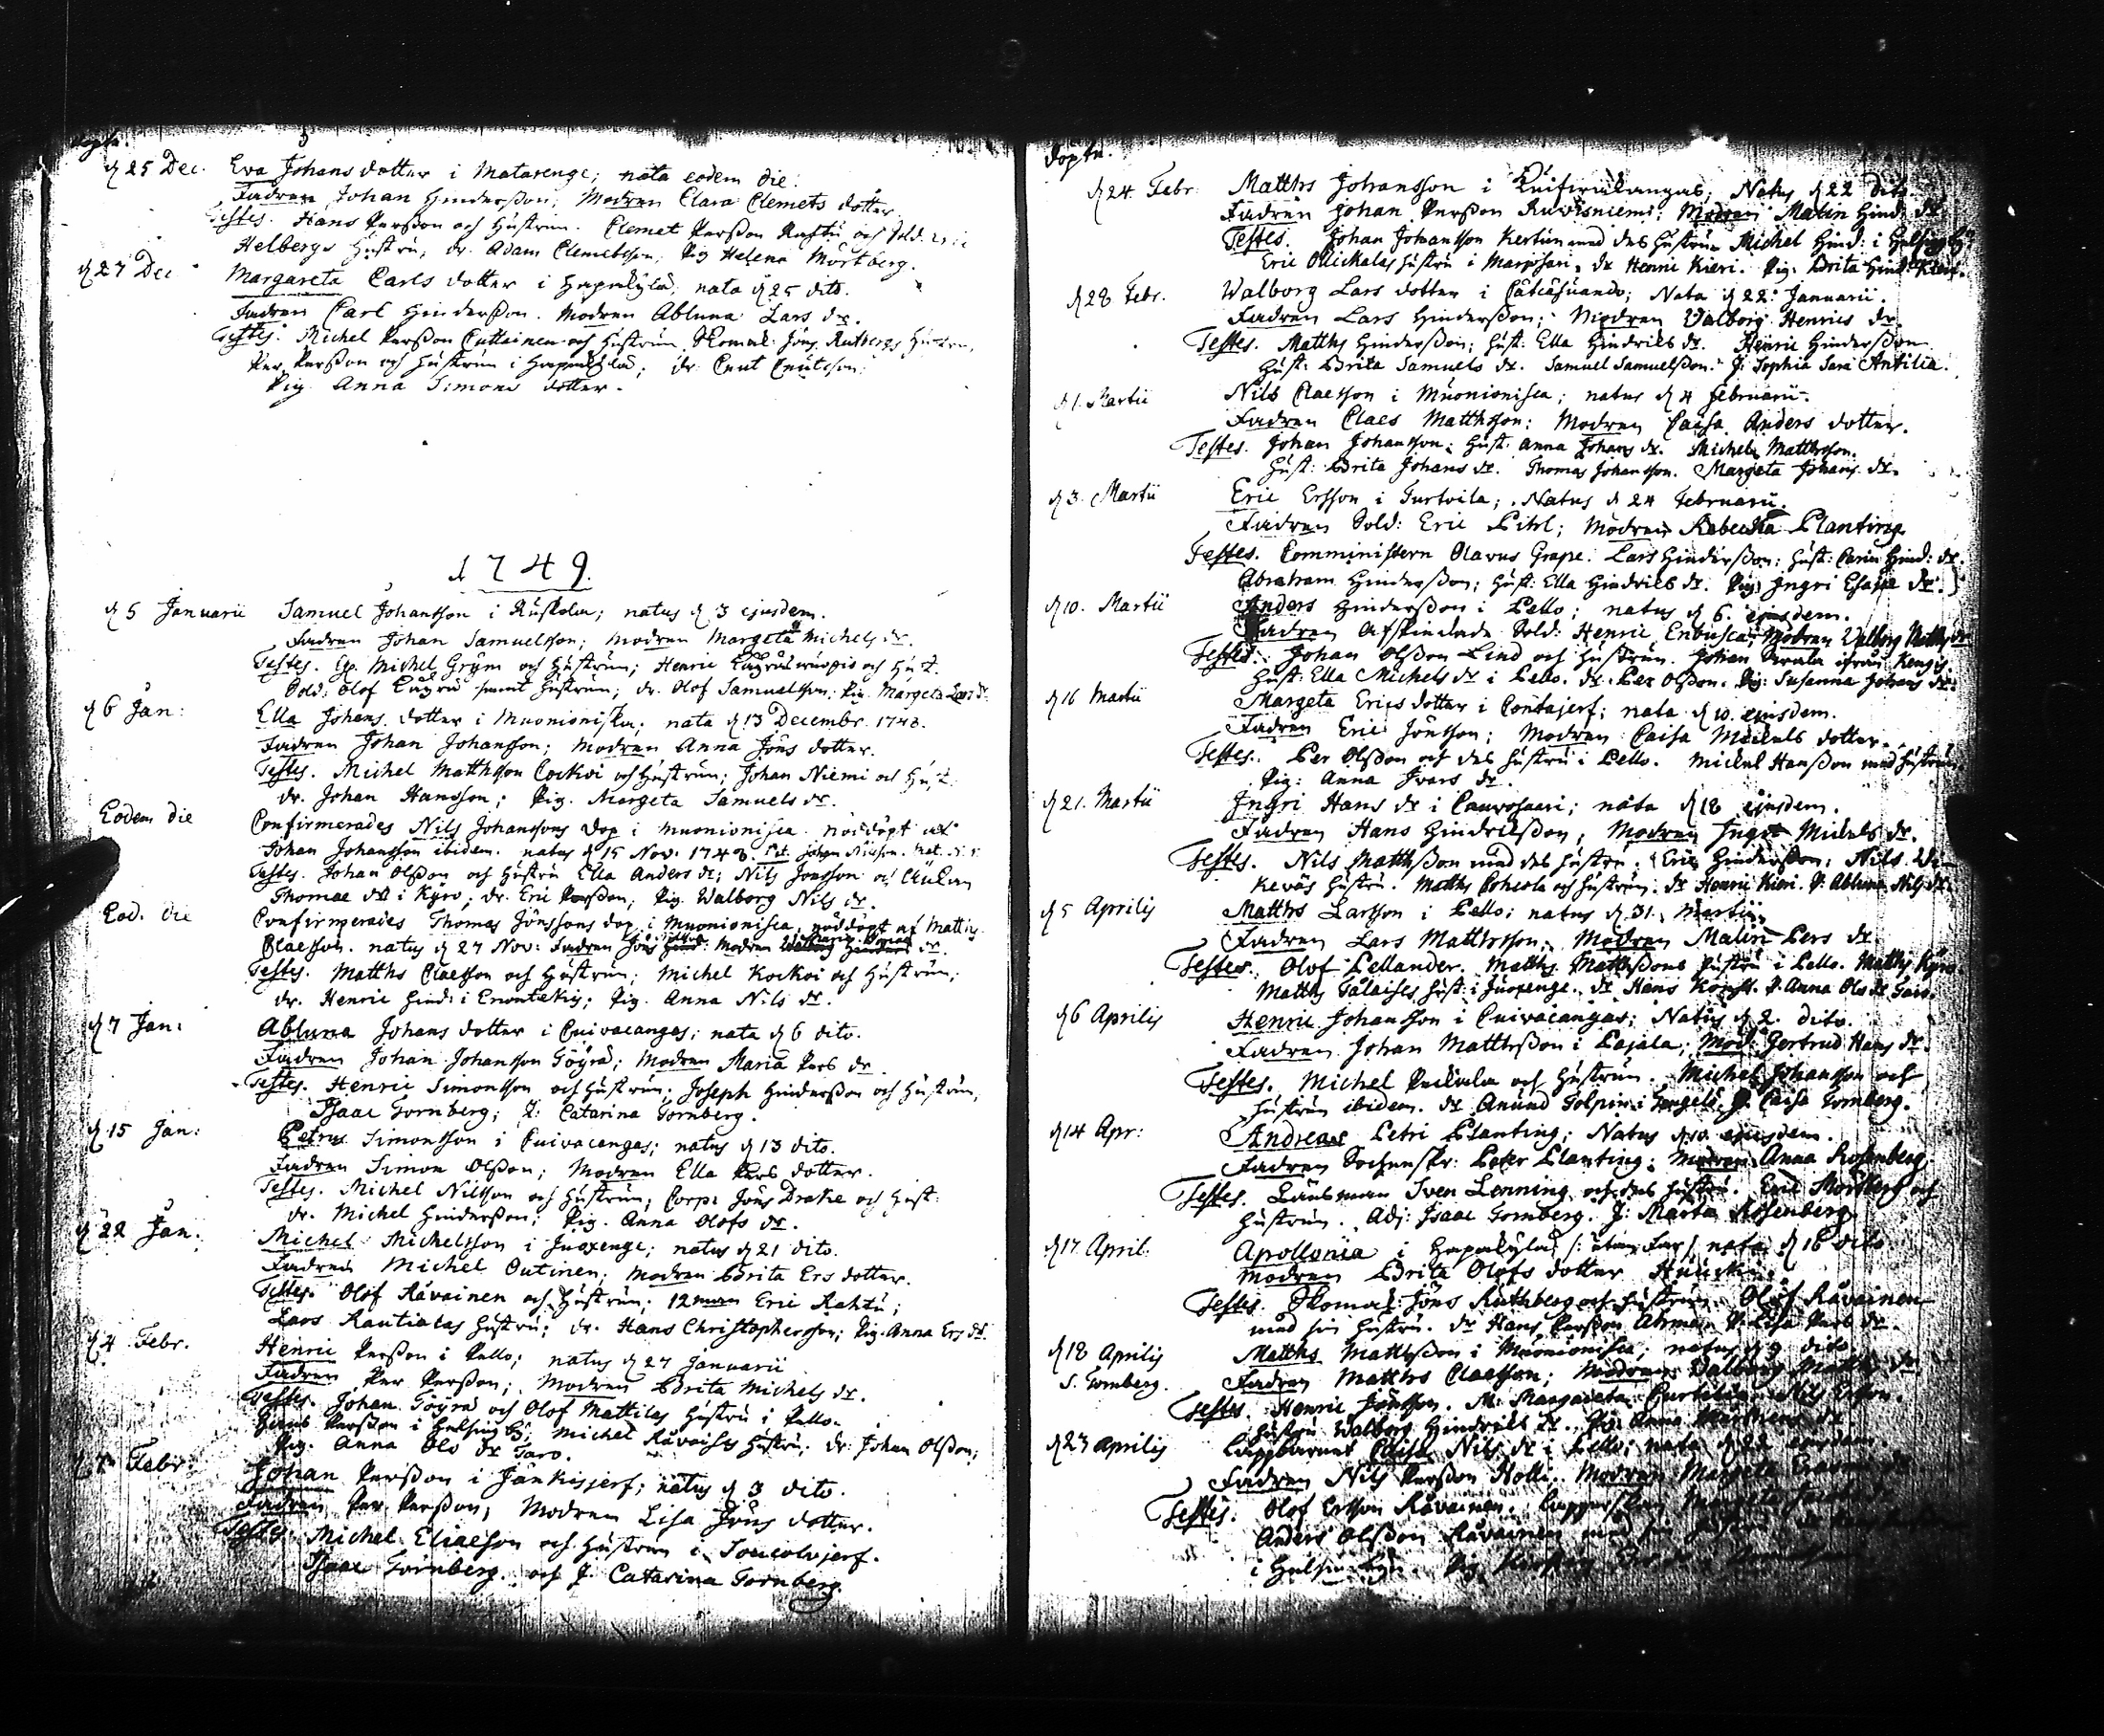 döpte.
d 25 Dec. Eva Johans dotter i Matarenge; nata eodem die.
Fadren Johan Hindersson; Modren Clara Clemets dotter
Testes. Hans Persson och Hustrun. Clemet Persson Rahtu och Sold.
Helbergs Hustru, dr. Adam Clemetsson, Pig Helena Mörtberg.
d 27 Dec Margareta Carls dotter i Hapakylä; nata d 25 dito.
Fadren Carl Hindersson. Modren Abluna Lars dr.
Testes. Michel Persson Cuttainen och Hustrun, Skomak: Jöns Rutbergs Hustru,
Per Persson och Hustrun i Hapakylä; dr. Cnut Cnutsson.
Pig. Anna Simons dotter.
1749.
d 5 Januarii Samuel Johansson i Ruskola; natus d 3 ejusdem.
Fadren Johan Samuelsson; Modren Margeta Michels dr.
Testes. Michel Grym och Hustrun; Henric och Hust.
Sold. Olof samt Hustrun; dr. Olof Samuelsson; Pig. Margeta Lars dr.
d 6 Jan: Ella Johans dotter i Muonioniska; nata d 13 Decembr. 1748.
Fadren Johan Johansson; Modren Anna Jöns dotter.
Testes. Michel Matthsson Cockoi och Hustrun; Johan Niemi och Hust.
dr. Johan Hansson; Pig. Margeta Samuels dr.
Eodem die Confirmerades Nils Johanssons dop i Muonionisca nöddöpt af
Johan Johansson ibidem. natus d 15 Nov. 1748. Johan Nilsson.
Testes. Johan Olsson och Hustru Ella Anders dr; Nils Jonsson och
Thomae dr i Kyrö; dr. Eric Persson; Pig. Walborg Nils dr.
Eod. die Confirmerades Thomas Jönssons dop i Muonionisca, nöddöpt af Matths
Claesson. natus d 27 Nov: Fadren Jöns Modren dr.
Testes. Matths Claesson och Hustrun; Michel Kockoi och Hustrun;
dr. Henric Hind: i Enontekis; Pig. Anna Nils dr.
d 7 Jan: Abluna Johans dotter i Cuivacangas; nata d 6 dito.
Fadren Johan Johansson Töyrä; Modren Maria Pers dr
Testes. Henric Simonsson och Hustrun; Joseph Hindersson och Hustrun,
Isaac Tornberg; J: Catarina Tornberg.
d 15 Jan: Petrus Simonsson i Cuivacangas; natus d 13 dito.
Fadren Simon Olsson; Modren Ella Pers dotter.
Testes. Michel Nilsson och Hustrun; Corp: Jöns Drake och Hust:
dr. Michel Hindersson; Pig. Anna Olofs dr.
d 22 Jan: Michel Michelsson i Juoxenge; natus d 21 dito.
Fadren Michel Outinen; Modren Brita Ers dotter.
Testes. Olof Råvainen och Hustrun; 12man Eric Rahtu;
Lars Rautiolas Hustru; dr. Hans Christophersson; Pig. Anna Ers dr.
d 4 Febr. Henric Persson i Pello; natus d 27 Januarii
Fadren Per Persson; Modren Brita Michels dr.
Testes. Johan Töyrä och Olof Mattilas Hustru i Pello.
Persson i Helsing By; Michel Råvaises Hustru; dr: Johan Olsson;
Pig. Anna Olo dr Taro.
d 7 Febr. Johan Persson i Jankisjerf; natus d 3 dito.
Fadren Per Persson; Modren Lisa Jöns dotter.
Testes. Michel Eliaesson och Hustrun i Toucolojerf.
Isaac Tornberg och J. Catarina Tornberg.
döpte.
d 24 Febr. Matths Johansson i Natus d 22 dito.
Fadren Johan Persson Ruvisniemi; Modren Malin Hind: dr
Testes. Johan Johansson Kertun med dess Hustru Michel Hind: i Helsing By
Eric Ollickalas Hustru i Marjosari. dr Henric Kieri. Pig. Brita Hind: dr Kieri.
d 28 Febr. Walborg Lars dotter i Cätcäsuando; Nata d 22 Januarii.
Fadren Lars Hindersson; Modren Valborg Henrics dr
Testes. Matths Hindersson; Hust: Ella Hindrics dr. Henric Hindersson
Hust: Brita Samuels dr. Samuel Samuelsson. J: Sophia Sara Antilia.
d 1. Martii Nils Claesson i Muonionisca; natus d 4 februarii.
Fadren Claes Matthsson; Modren Caisa Anders dotter.
Testes. Johan Johansson; Hust: Anna Johans dr. Michel Matthsson.
Hust: Brita Johans dr. Thomas Johansson. Margeta Johans dr.
d 3. Martii Eric Ersson i Turtola; Natus d 24 Februarii.
Fadren Sold: Eric Pihl; Modren Rebecka Planting
Testes. Comministern Olavus Grape. Lars Hindersson; Hust: Carin Hind: dr.
Abraham Hindersson; Hust: Ella Hindrics dr. Pig: Ingri Esaiae dr.
d 10. Martii Anders Hindersson i Pello; natus d 6. ejusdem.
Fadren Afskedade Sold: Henric Enbusca; Modren Valborg Matths dr
Testes. Johan Olsson Lind och Hustrun. Johan ifrån Kengis.
Hust: Ella Michels dr i Pello. dr. Per Olsson. Pig: Susanna Johans dr.
d 16 Martii Margeta Erics dotter i Contajerf; nata d 10. ejusdem.
Fadren Eric Jönsson; Modren Caisa Michels dotter.
Testes. Per Olsson och dess Hustru i Pello. Michel Hansson med Hustrun.
Pig: Anna Ivars dr.
d 21. Martii Ingri Hans dr i Cauvosaari; nata d 18 ejusdem.
Fadren Hans Hindricsson; Modren Ingri Michels dr.
Testes. Nils Matthsson med dess Hustru. Eric Hindersson; Nils
Hustru. Matths Cohcola och Hustrun. dr Henric Kieri. P. Abluna Nils dr.
d 5 Aprilis Matths Larsson i Pello; natus d. 31. Martii.
Fadren Lars Matthsson. Modren Malin Pers dr
Testes. Olof Pellander. Matths Matthssons Hustru i Pello. Matths Kyrö.
Matths Talaises Hust: i Juoxenge. dr Hans P. Anna Olo dr Taro.
d 6 Aprilis Henric Johansson i Cuivacangas; Natus d 2. dito.
Fadren Johan Matthsson i Pajala; Mod: Gertrud Hans dr.
Testes. Michel och Hustrun. Michel Johansson och
Hustrun ibidem. dr Anund Tolpin i Tengelä. J. Caisa Tornberg.
d 14 Apr: Andreas Petri Planting; Natus d 10. ejusdem.
Fadren Sochenskr: Peter Planting; Modren Anna Rosenberg
Testes. Länsman Sven Lenning och dess Hustru. Eric Mörtberg och
Hustrun. Adj: Isaac Tornberg. J: Marta Rosenberg
d 17. April: Apollonia i Hapakylä /: utan far :/ nata d 16 dito
Modren Brita Olofs dotter
Testes. Skomak: Jöns Ruthberg och Hustrun Olof Råvainen
med sin Hustru. dr Hans Persson P. Lisa Pers dr.
d 18 Aprilis Matths Matthsson i Muonionisca; natus d 9 dito
S. Tornberg. Fadren Matths Claesson; Modren Valborg Matths dr
Testes. Henric Jönsson. M. Margareta Nils Ersson.
Hustru Walborg Hindrics dr. Pig: Anna
d 23 Aprilis Lappbarnet Caisa Nils dr i Pello; nata d 22 ejusdem.
Fadren Nils Persson Hotti. Modren Margeta Erasmi dr
Testes. Olof Ersson Råvainen.
Anders Olsson Råvainen med sin Hustru
i Helsing By. Pig